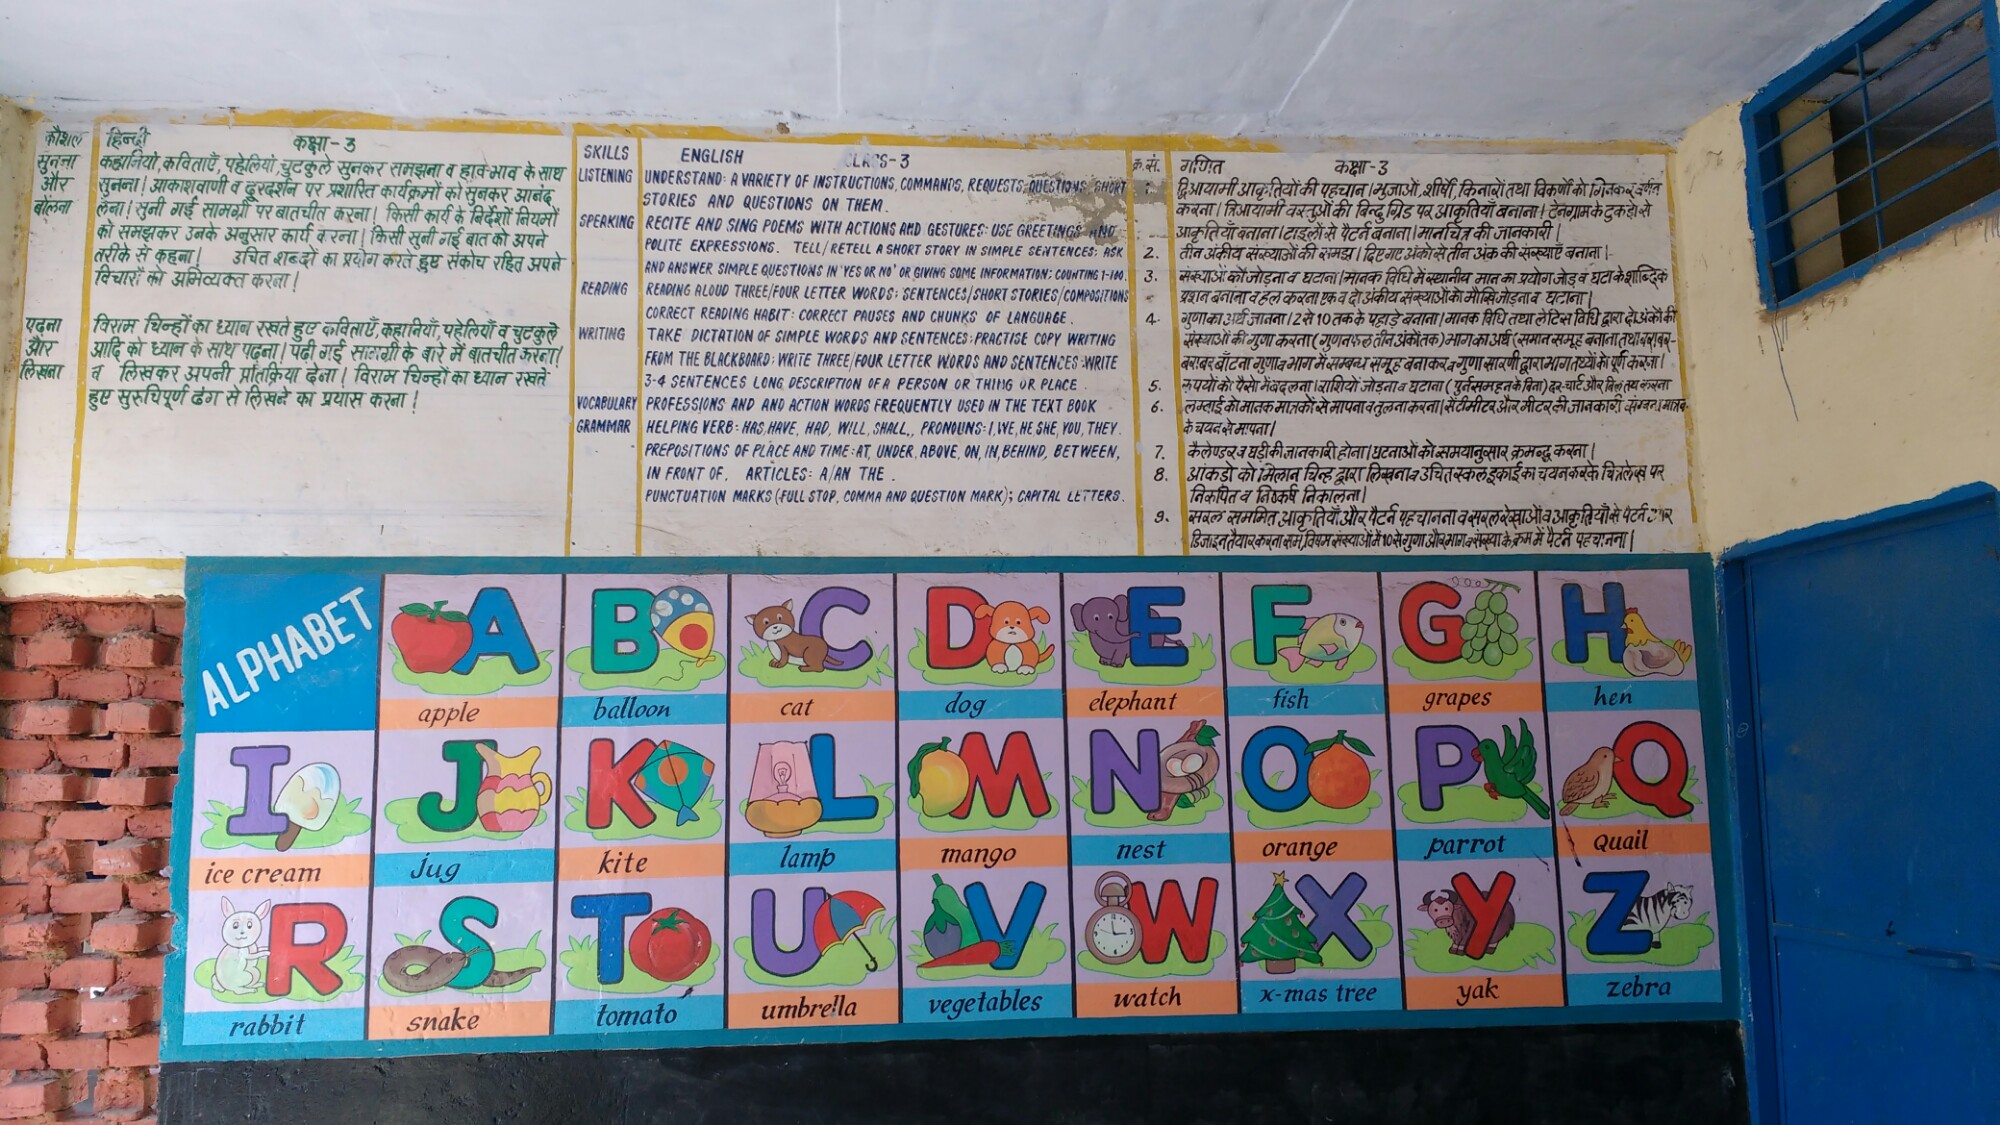 कौशल हिन्दी कक्षा-3
सुनना कहानियों, कविताएँ, पहेलियों, चुटकुले सुनकर समझना व हाव-भाव के साथ
और सुनना। आकाशवाणी व दूरदर्शन पर प्रशारित कार्यक्रमों को सुनकर आनंद
बोलना लेना। सुनी गई सामग्री पर बातचीत करना। किसी कार्य के निर्देशों नियमों
को समझकर उनके अनुसार कार्य करना। किसी सुनी गई बात को अपने
तरीके से कहना। उचित शब्दों का प्रयोग करते हुए संकोच रहित अपने
विचारों को अभिव्यक्त करना।
पढ़ना विराम चिन्हों का ध्यान रखते हुए कविताएँ, कहानियाँ, पहेलियाँ व चुटकुले
और आदि को ध्यान के साथ पढ़ना। पढ़ी गई सामग्री के बारे में बातचीत करना।
लिखना व लिखकर अपनी प्रतिक्रिया देना। विराम चिन्हों का ध्यान रखते
हुए सुरुचिपूर्ण ढंग से लिखने का प्रयास करना।
SKILLS ENGLISH CLASS-3
LISTENING UNDERSTAND: A VARIETY OF INSTRUCTIONS, COMMANDS, REQUESTS, QUESTIONS, SHORT
STORIES AND QUESTIONS ON THEM.
SPEAKING RECITE AND SING POEMS WITH ACTIONS AND GESTURES: USE GREETINGS AND
POLITE EXPRESSIONS. TELL/RETELL A SHORT STORY IN SIMPLE SENTENCES: ASK
AND ANSWER SIMPLE QUESTIONS IN 'YES OR NO' OR GIVING SOME INFORMATION: COUNTING 1-100.
READING READING ALOUD THREE/FOUR LETTER WORDS; SENTENCES/SHORT STORIES/COMPOSITIONS
CORRECT READING HABIT: CORRECT PAUSES AND CHUNKS OF LANGUAGE.
WRITING TAKE DICTATION OF SIMPLE WORDS AND SENTENCES: PRACTISE COPY WRITING
FROM THE BLACKBOARD: WRITE THREE/FOUR LETTER WORDS AND SENTENCES: WRITE
3-4 SENTENCES LONG DESCRIPTION OF A PERSON OR THING OR PLACE.
VOCABULARY PROFESSIONS AND AND ACTION WORDS FREQUENTLY USED IN THE TEXT BOOK
GRAMMAR HELPING VERB: HAS, HAVE, HAD, WILL, SHALL,, PRONOUNS: I, WE, HE SHE, YOU, THEY.
PREPOSITIONS OF PLACE AND TIME: AT, UNDER, ABOVE, ON, IN, BEHIND, BETWEEN,
IN FRONT OF. ARTICLES: A/AN THE.
PUNCTUATION MARKS (FULL STOP, COMMA AND QUESTION MARK); CAPITAL LETTERS.
क्र.सं. गणित कक्षा-3
1. द्विआयामी आकृतियों की पहचान। भुजाओं, शीर्षों, किनारों तथा विकर्णों को गिनकर वर्णन
करना। त्रिआयामी वस्तुओं की बिन्दु ग्रिड पर आकृतियाँ बनाना। टेनग्राम के टुकड़ो से
आकृतियाँ बनाना। टाइलों से पैटर्न बनाना। मानचित्र की जानकारी।
2. तीन अंकीय संख्याओं की समझ। दिए गए अंकों से तीन अंक की संख्याएँ बनाना।
3. संख्याओं को जोड़ना व घटाना। मानक विधि में स्थानीय मान का प्रयोग जोड़ व घटा के शाब्दिक
प्रशन बनाना व हल करना एक व दो अंकीय संख्याओं को मौखि जोड़ना व घटाना।
4. गुणा का अर्थ जानना। 2 से 10 तक के पहाड़े बनाना। मानक विधि तथा लेटिस विधि द्वारा दो अंकों की
संख्याओं की गुणा करना (गुणनफल तीन अंकों तक) भाग का अर्थ (समान समूह बनाना तथा बराबर-
बराबर बाँटना गुणा व भाग में सम्बन्ध समूह बनाकर व गुणा सारणी द्वारा भाग तथ्यों को पूर्ण करना।
5. रूपयों को पैसों में बदलना। राशियों जोड़ना व घटाना (पुर्नसमहन के बिना) दर-चार्ट और बिल तथ करना
6. लम्बाई को मानक मात्रकों से मापना व तुलना करना। सेंटीमीटर और मीटर की जानकारी
के चयन से मापना।
7. कैलेण्डर व घड़ी की जानकारी होना। घटनाओं को समयानुसार क्रमबद्ध करना।
8. आंकड़ो को मिलान चिन्ह द्वारा लिखना व उचित स्केल इकाई का चयन करके चित्रलेख पर
निरूपित व निष्कर्ष निकालना।
9. सरल सममित आकृतियाँ और पैटर्न पहचानना व सरल रेखाओं व आकृतियों से पैटर्न और
डिजाइन तैयार करना सम, विषम संख्याओं में 10 से गुणा और भाग व संख्या के क्रम में पैटर्न पहचानना।
ALPHABET A B C D E F G H
apple balloon cat dog elephant fish grapes hen
I J K L M N O P Q
ice cream jug kite lamp mango nest orange parrot Quail
R S T U V W X Y Z
rabbit snake tomato umbrella vegetables watch x-mas tree yak zebra